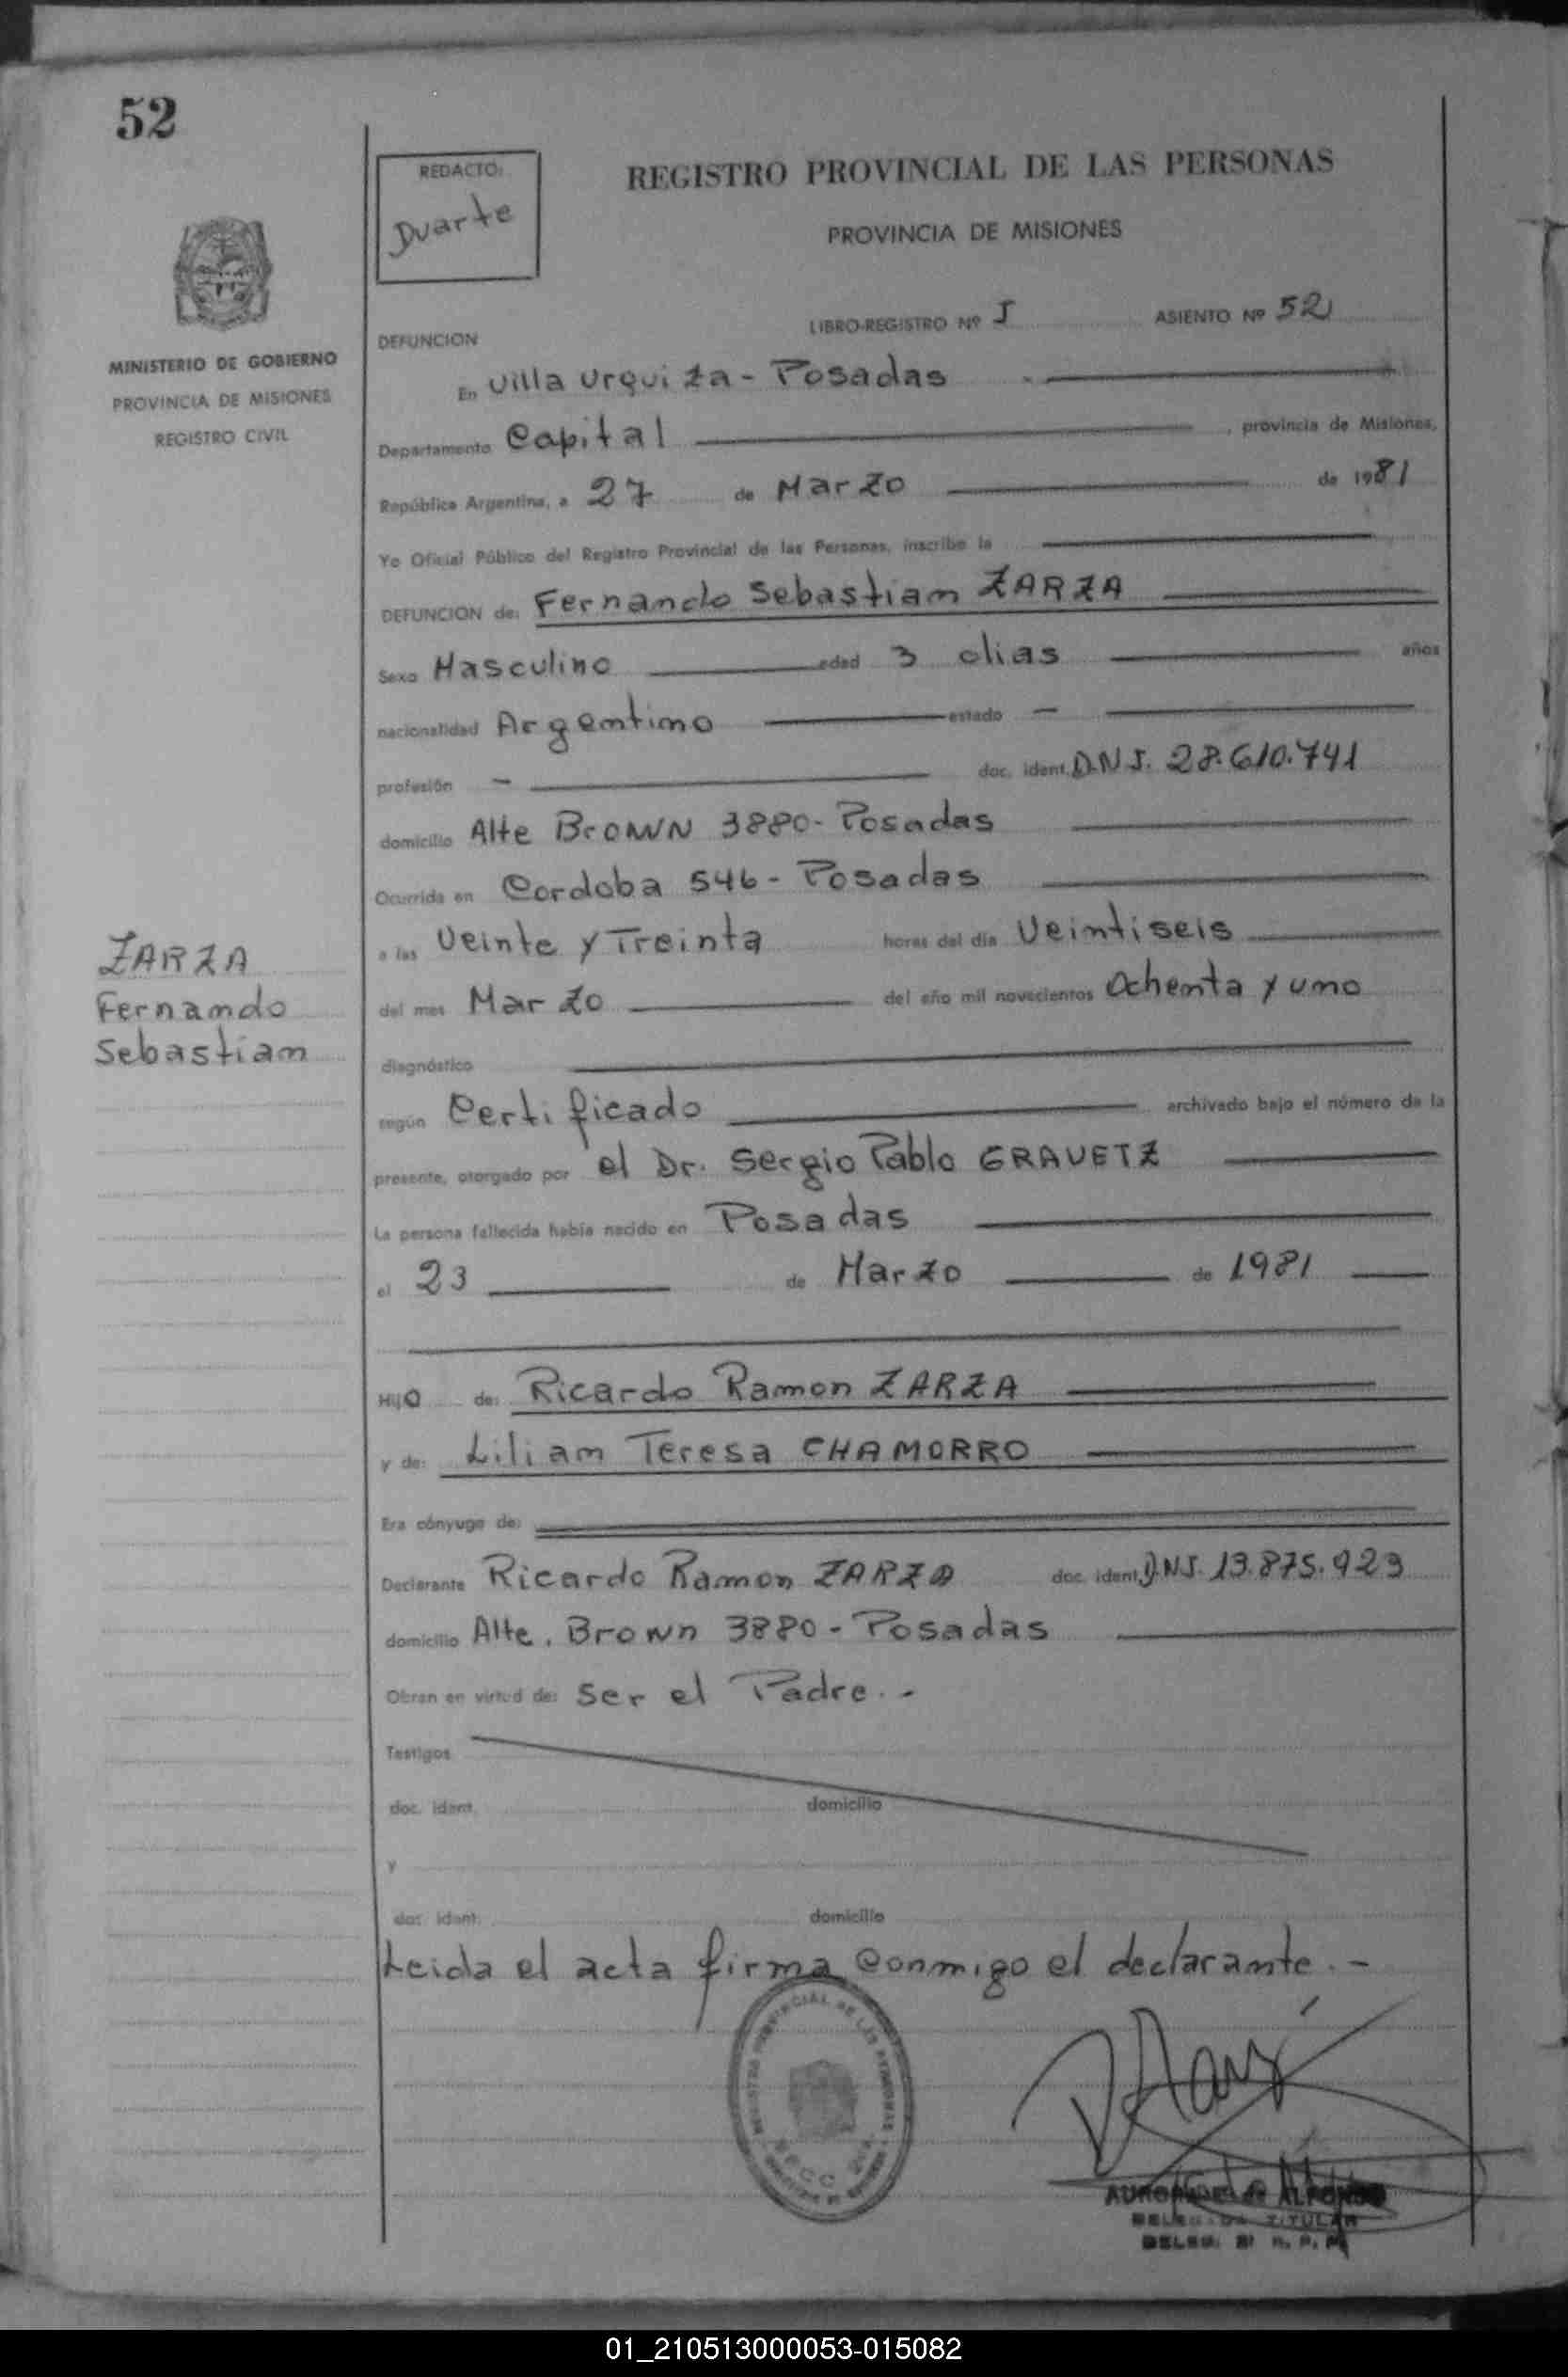 52
REDACTO:
Duarte
REGISTRO PROVINCIAL DE LAS PERSONAS
PROVINCIA DE MISIONES
MINISTERIO DE GOBIERNO
PROVINCIA DE MISIONES
REGISTRO CIVIL
LIBRO-REGISTRO Nº I ASIENTO Nº 52
DEFUNCION
En Villa Urquiza - Posadas
Departamento Capital , provincia de Misiones,
República Argentina, a 27 de Marzo de 1981
Yo Oficial Público del Registro Provincial de las Personas, inscribo la
DEFUNCION de: Fernando Sebastiam ZARZA
Sexo Masculino edad 3 dias años
nacionalidad Argentino estado -
profesión - doc. ident. D.N.I. 28.610.741
domicilio Alte Brown 3880 - Posadas
Ocurrida en Cordoba 546 - Posadas
a las Veinte y Treinta horas del día Veintiseis
del mes Marzo del año mil novecientos Ochenta y uno
diagnóstico
según Certificado archivado bajo el número de la
presente, otorgado por el Dr. Sergio Pablo GRAVETZ
La persona fallecida había nacido en Posadas
el 23 de Marzo de 1981
Hijo de: Ricardo Ramon ZARZA
y de: Liliam Teresa CHAMORRO
Era cónyuge de:
Declarante Ricardo Ramon ZARZA doc. ident. D.N.I. 13.875.923
domicilio Alte. Brown 3880 - Posadas
Obran en virtud de: Ser el Padre. -
Testigos
doc. ident. domicilio
y
doc. ident. domicilio
Leida el acta firma conmigo el declarante. -
ZARZA
Fernando
Sebastiam
REGISTRO PROVINCIAL DE LAS PERSONAS
de ALFONSO
TITULAR
01_210513000053-015082